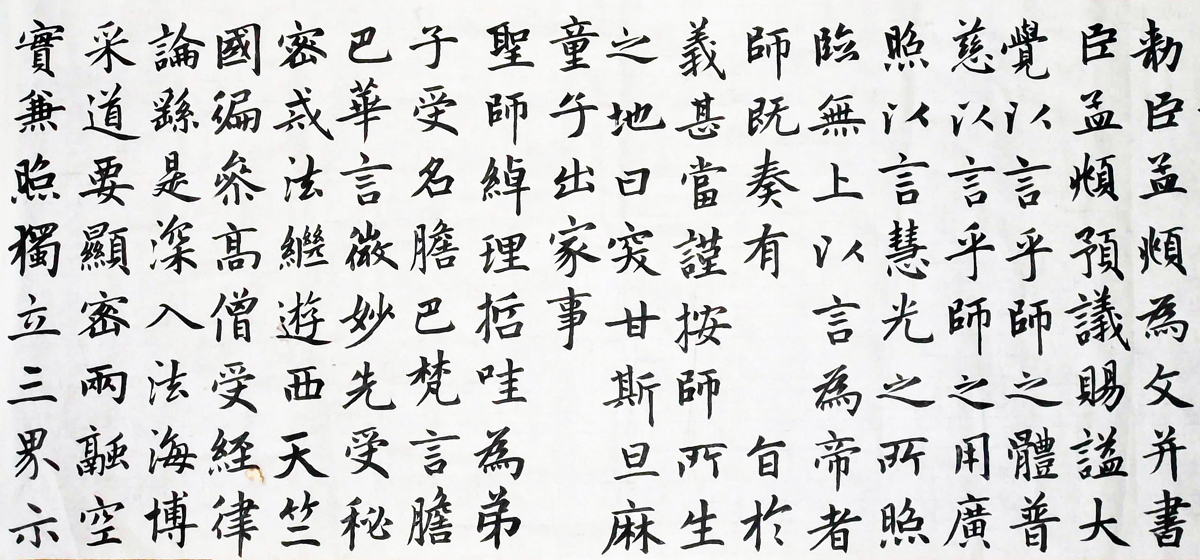 勅臣孟頫為文并書
臣孟頫預議賜謚大
覺以言乎師之體普
慈以言乎師之用廣
照以言慧光之所照
臨無上以言為帝者
師既奏有 旨於
義甚當謹按師所生
之地曰突甘斯旦麻
童子出家事
聖師綽理哲哇為弟
子受名膽巴梵言膽
巴華言微妙先受秘
密戒法繼遊西天竺
國徧參高僧受経律
論繇是深入法海博
采道要顯密兩融空
實兼照獨立三界示